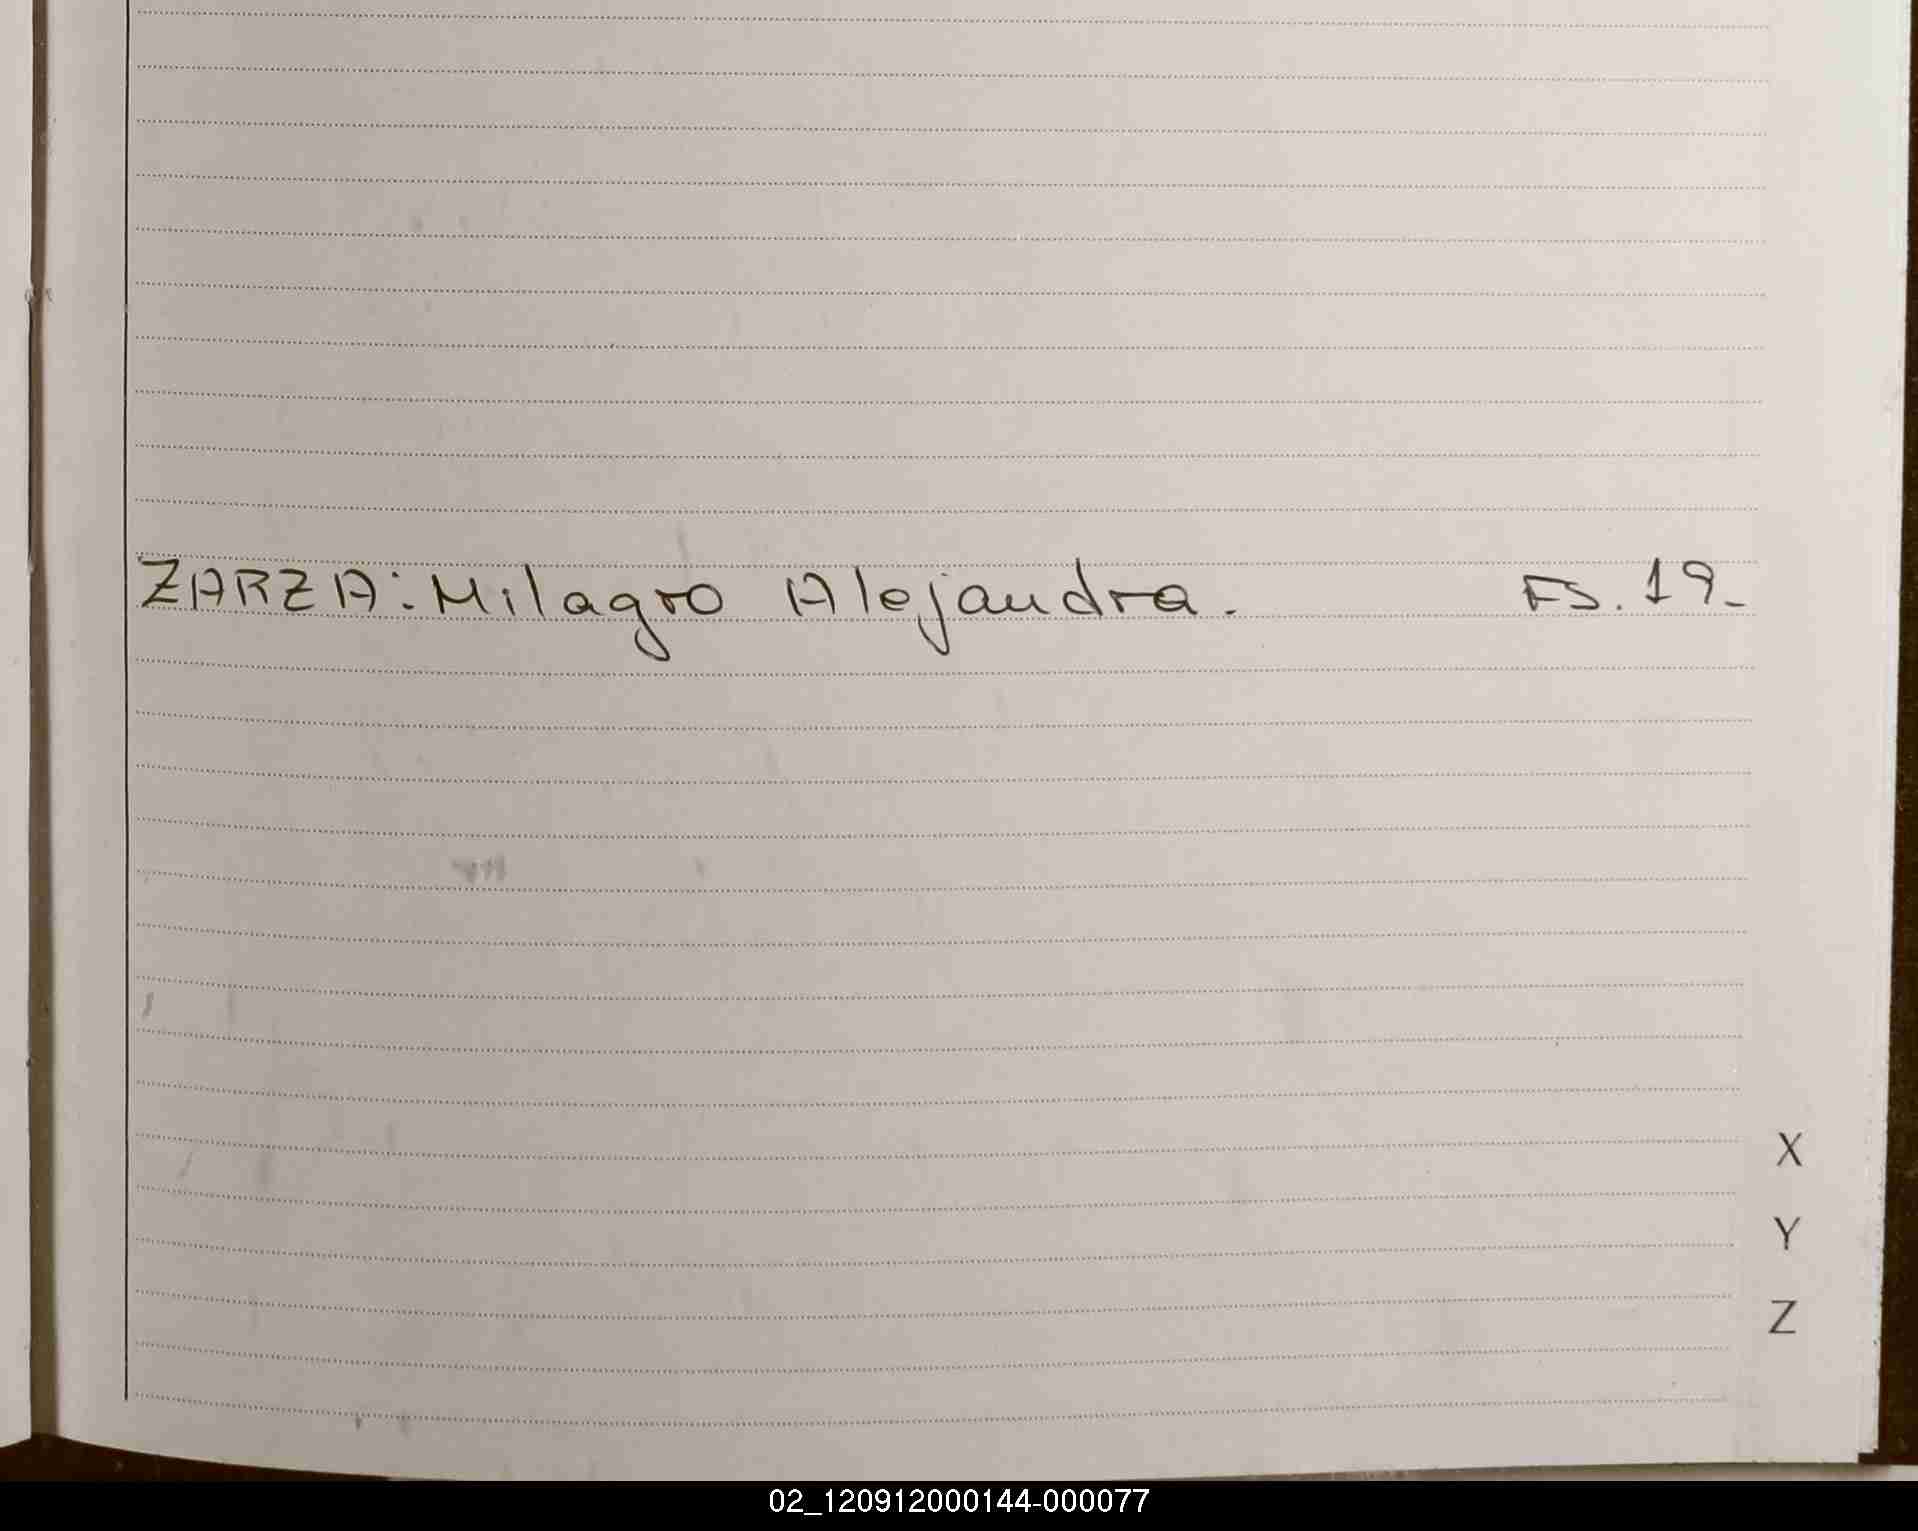 ZARZA: Milagro Alejandra. FS. 19-
X
Y
Z
02_120912000144-000077